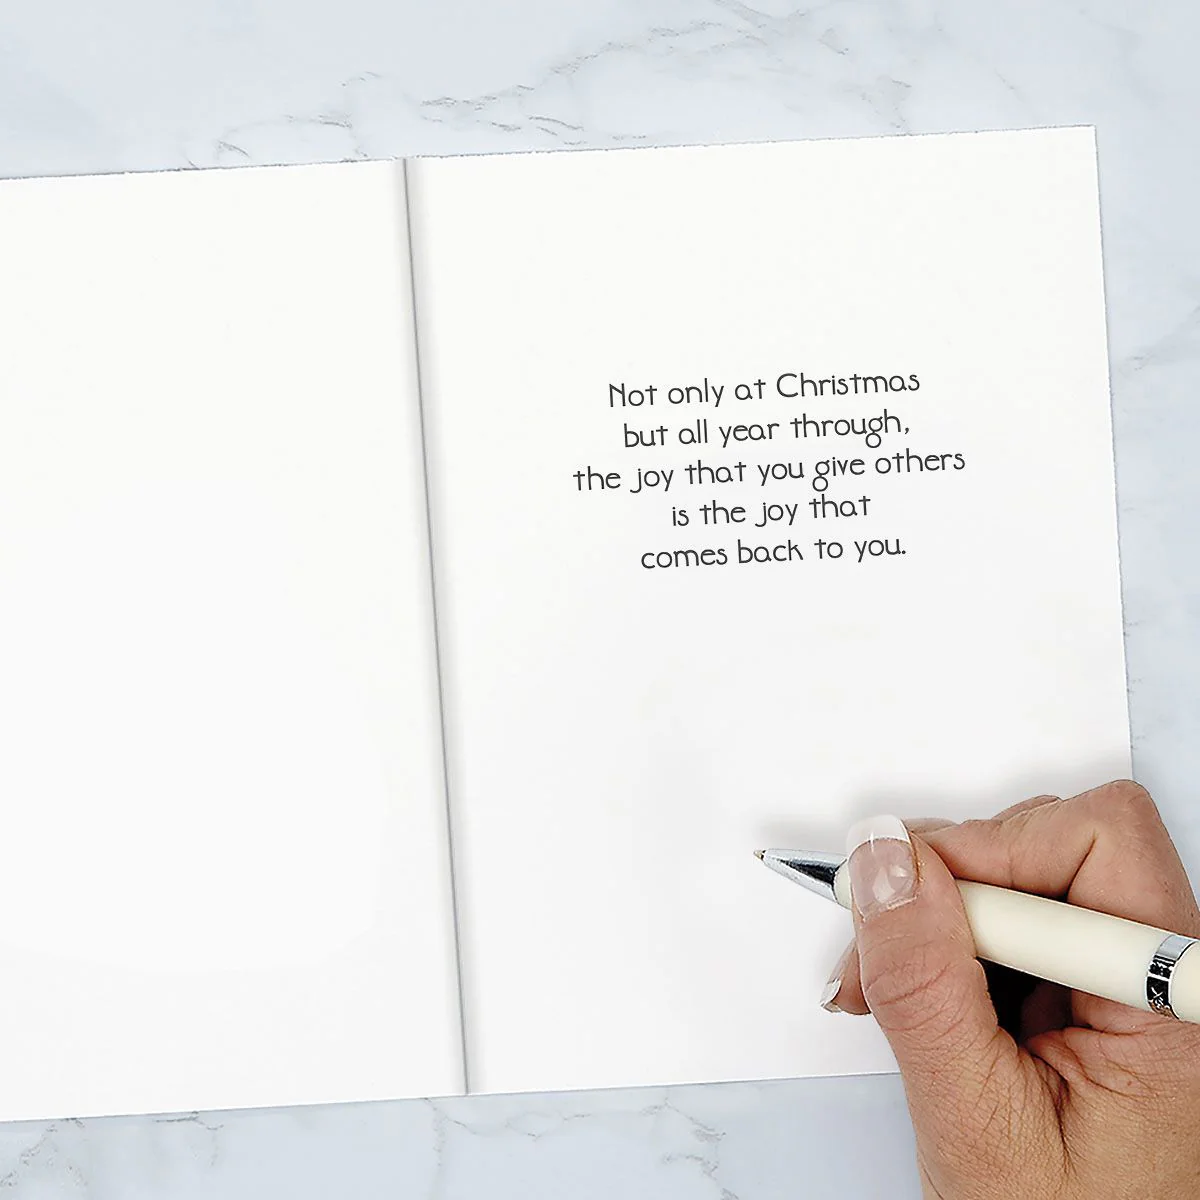 Not only at Christmas
but all year through,
the joy that you give others
is the joy that
comes back to you.